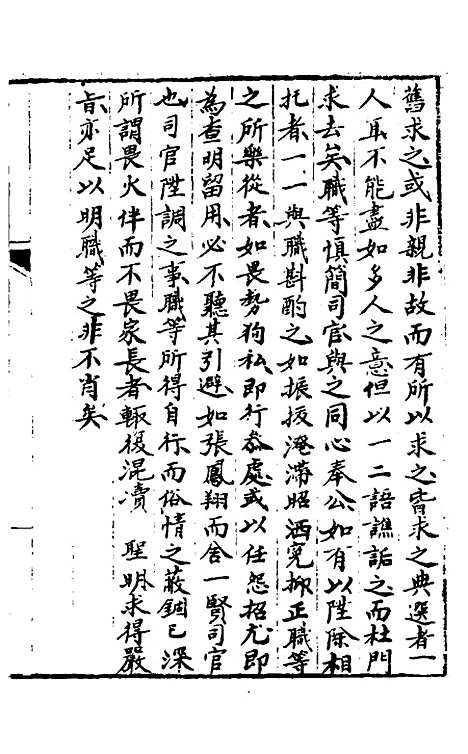 舊求之或非親非故而有所以求之皆求之典選者一
人耳不能盡如多人之意但以一二語譙詬之而杜門
求去矣職等慎簡司官與之同心奉公如有以陞除相
托者一一與職斟酌之如振拔淹滯昭洒冤抑正職等
之所樂從者如畏勢狥私即行叅處或以任怨招尤即
為查明留用必不聽其引避如張鳳翔而舍一賢司官
也司官陞調之事職等所得自行而俗情之蔽錮已深
所謂畏火伴而不畏家長者輙復混凟　聖明求得嚴
旨亦足以明職等之非不肖矣
一